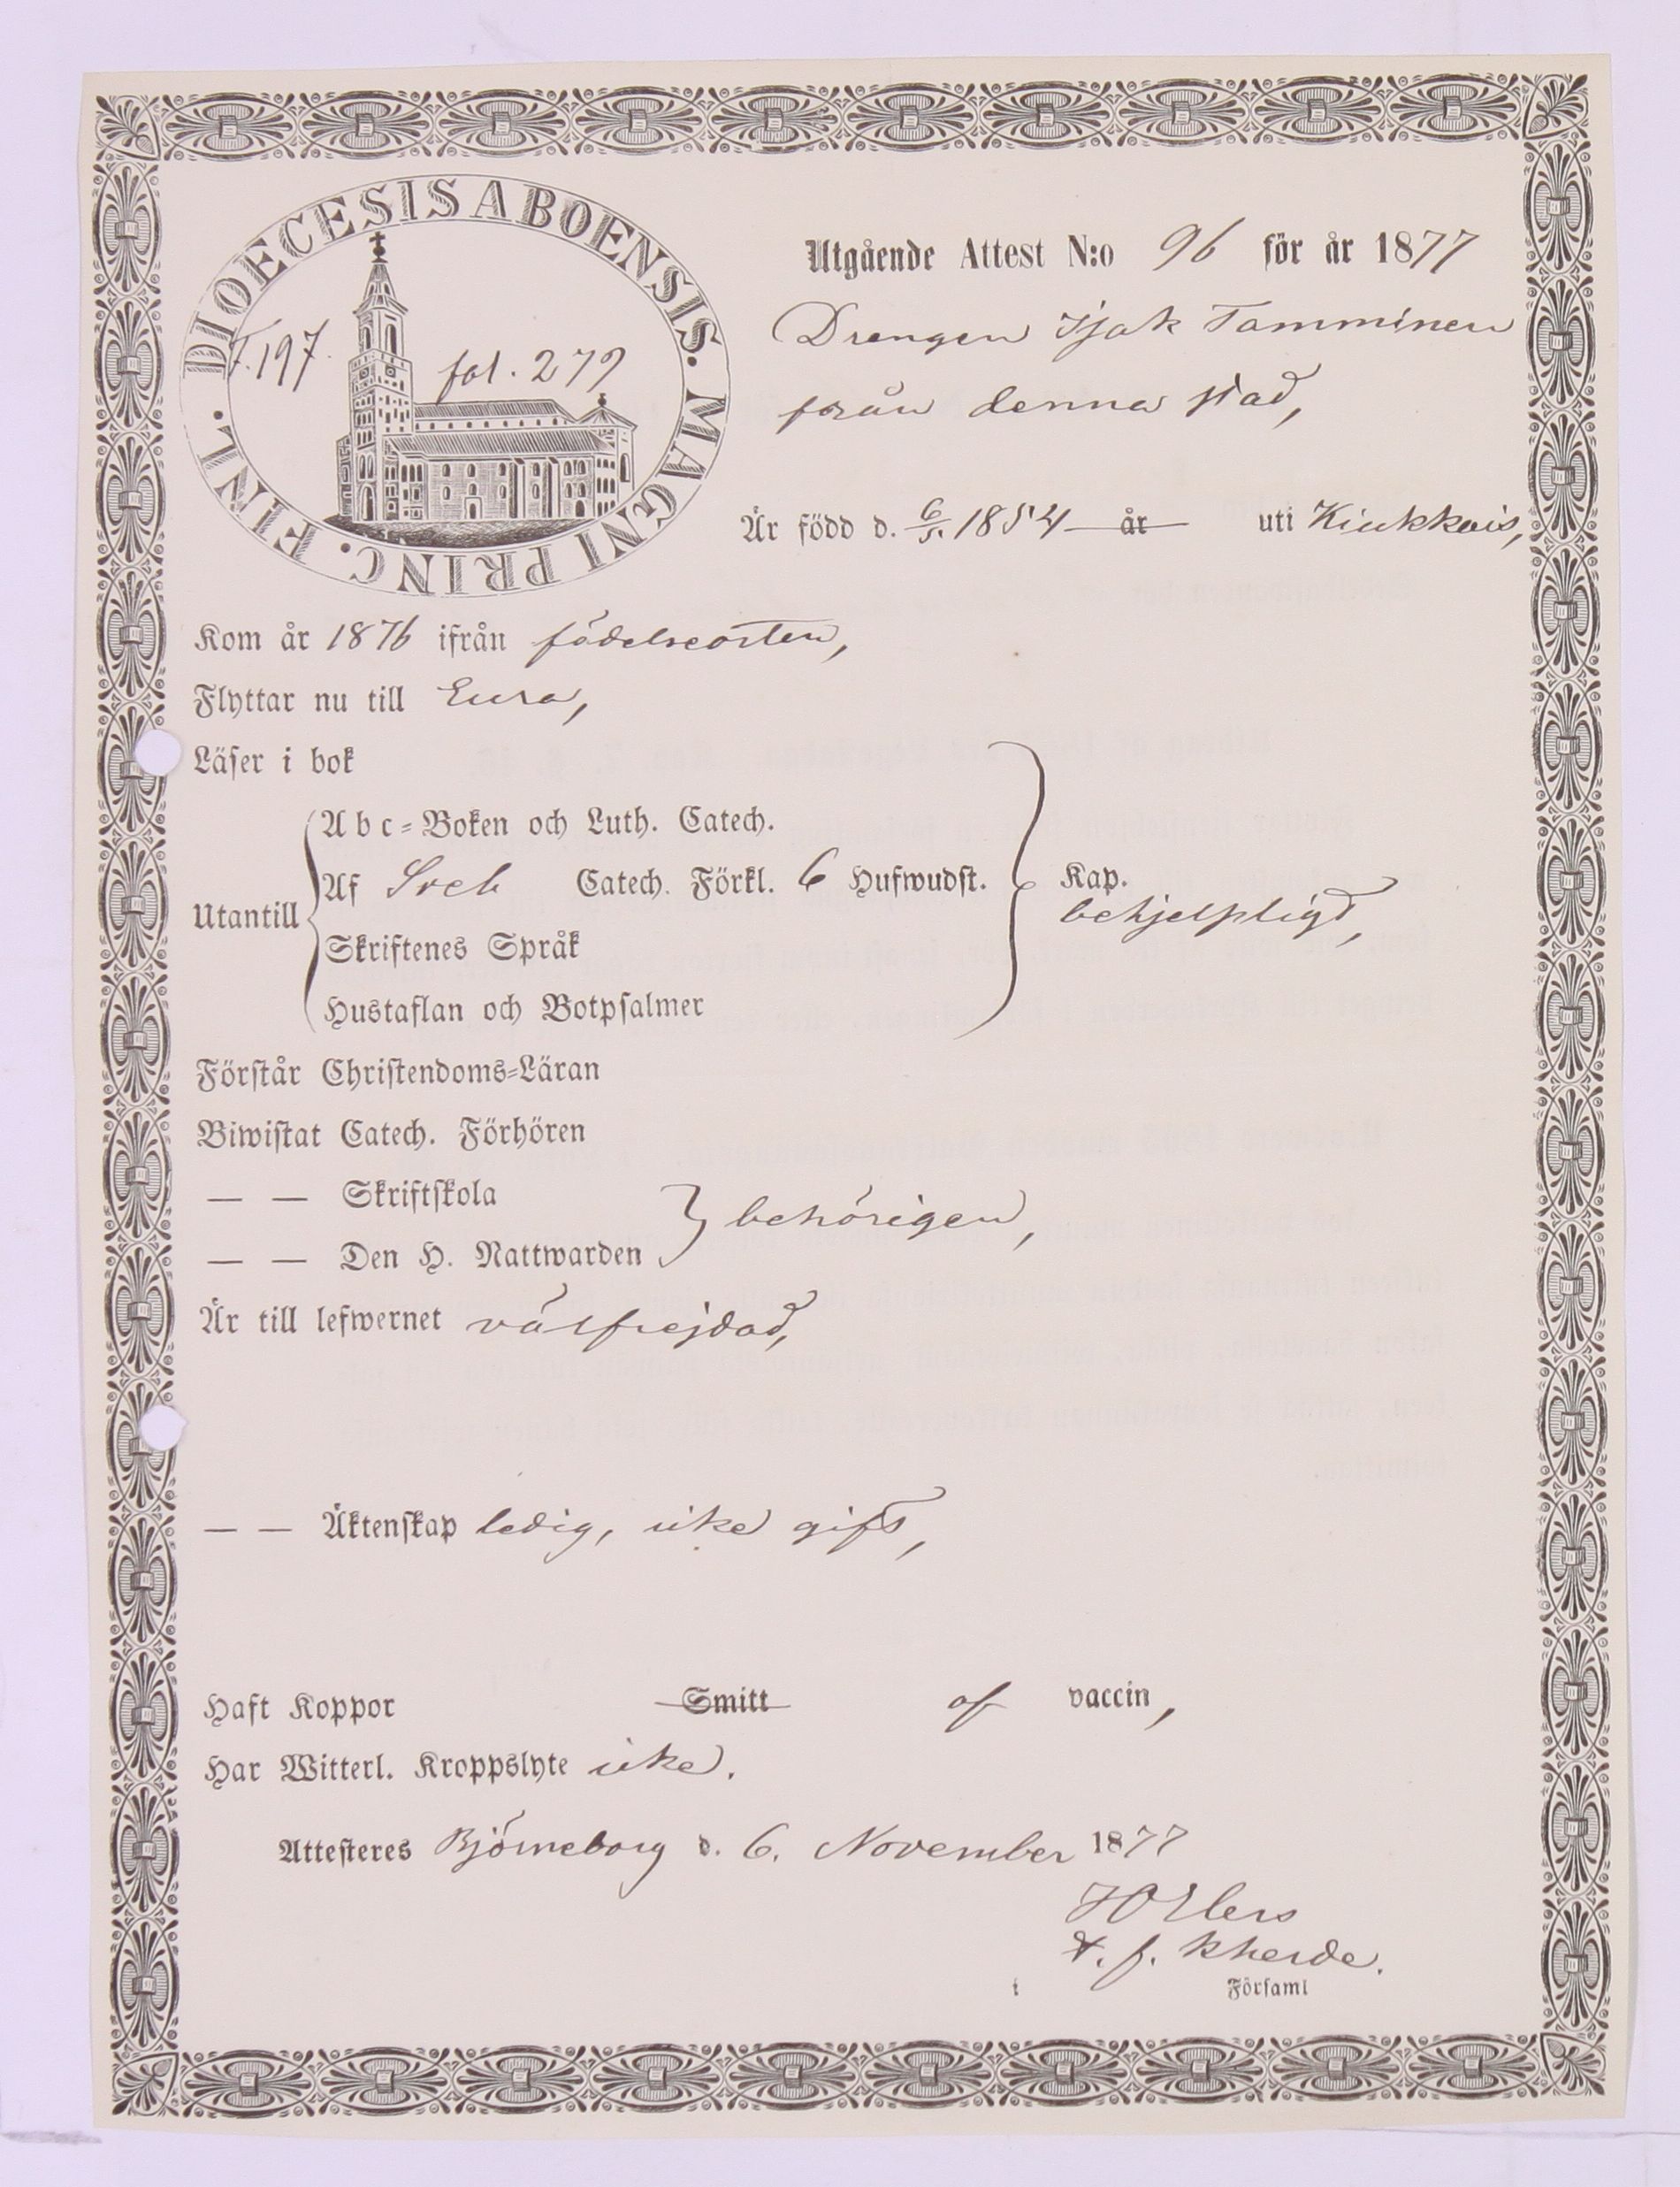 DIOECESIS ABOENSIS. MAGNI PRINC. FINL.
T. 197. fol. 279
Utgående Attest N:o 96 för år 1877
Drengen Isak Tamminen
från denna stad,
Är född d. 6/5. 1854 år uti Kiukkais,
Kom år 1876 ifrån födelseorten,
Flyttar nu till Eura,
Läser i bok
Abc=Boken och Luth. Catech.
Af Sveb Catech. Förkl. 6 Hufwudst. Kap.
Utantill behjelpligt,
Skriftenes Språk
Hustaflan och Botpsalmer
Förstår Christendoms=Läran
Biwistat Catech. Förhören
— — Skriftskola
behörigen,
— — Den H. Nattwarden
Är till lefwernet välfrejdad,
— — Äktenskap ledig, icke gift,
Haft Koppor Smitt af vaccin,
Har Witterl. Kroppslyte icke.
Attesteres Björneborg d. 6. November 1877
Elers
t. f. Kherde.
i Församl